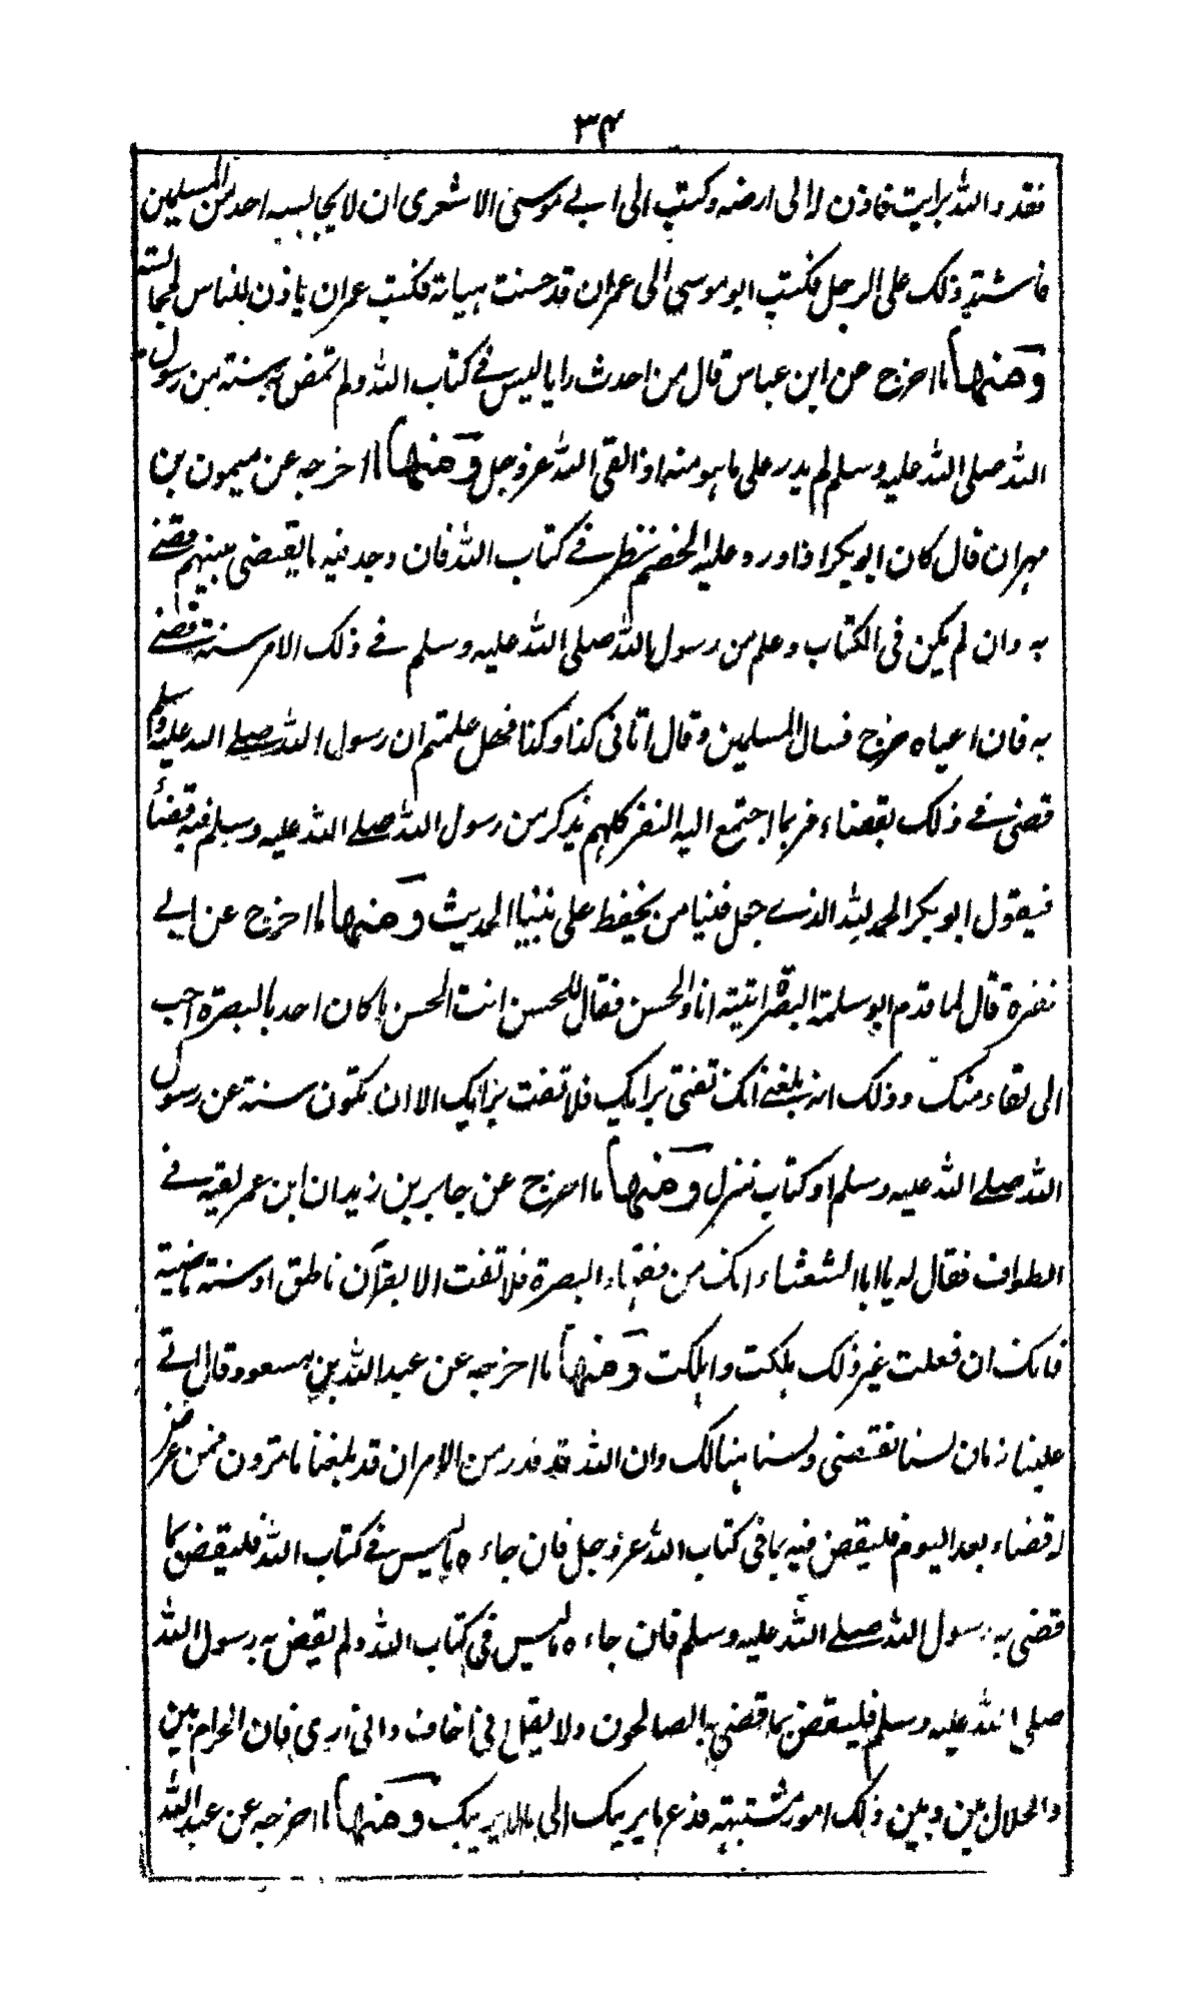 ۳۴
فقد والله برایت فاذن له الی ارضه وکتب الی ابی موسی الاشعری ان لا یجالسه احد من المسلمین
فاشتد ذلک علی الرجل فکتب ابو موسی الی عمر ان قد حسنت هیاته فکتب عمر ان یاذن للناس لمجالسته
ومنها ما اخرج عن ابن عباس قال من احدث رایا لیس فی کتاب الله ولم تمض به سنة من رسول
الله صلی الله علیه وسلم لم یدر علی ما هو منه اذا لقی الله عز وجل ومنها ما اخرجه عن میمون بن
مهران قال کان ابو بکر اذا ورد علیه الخصم نظر فی کتاب الله فان وجد فیه ما یقضی بینهم قضی
به وان لم یکن فی الکتاب وعلم من رسول الله صلی الله علیه وسلم فی ذلک الامر سنة قضی
به فان اعیاه خرج فسال المسلمین وقال اتانی کذا وکذا فهل علمتم ان رسول الله صلی الله علیه وسلم
قضی فی ذلک بقضاء فربما اجتمع الیه النفر کلهم یذکر من رسول الله صلی الله علیه وسلم فیه قضاءً
فیقول ابو بکر الحمد لله الذی جعل فینا من یحفظ علی نبینا الحدیث ومنها ما اخرج عن ابی
نضرة قال لما قدم ابو سلمة البصرة اتیته انا والحسن فقال للحسن انت الحسن ما کان احد بالبصرة احب
الی لقاء منک وذلک انه بلغنی انک تفتی برایک فلا تفت برایک الا ان تکون سنة عن رسول
الله صلی الله علیه وسلم او کتاب منزل ومنها ما اخرج عن جابر بن زید ان ابن عمر لقیه فی
الطواف فقال له یا ابا الشعثاء انک من فقهاء البصرة فلا تفت الا بقرآن ناطق او سنة ماضیة
فانک ان فعلت غیر ذلک هلکت واهلکت ومنها ما اخرجه عن عبد الله بن مسعود قال اتی
علینا زمان لسنا نقضی ولسنا هنالک وان الله قد قدر من الامر ان قد بلغنا ما ترون فمن عرض
له قضاء بعد الیوم فلیقض فیه بما فی کتاب الله عز وجل فان جاءه ما لیس فی کتاب الله فلیقض بما
قضی به رسول الله صلی الله علیه وسلم فان جاءه ما لیس فی کتاب الله ولم یقض به رسول الله
صلی الله علیه وسلم فلیقض بما قضی به الصالحون ولا یقل انی اخاف وانی اری فان الحرام بین
والحلال بین وبین ذلک امور مشتبهة فدع ما یریبک الی ما لا یریبک ومنها ما اخرجه عن عبد الله